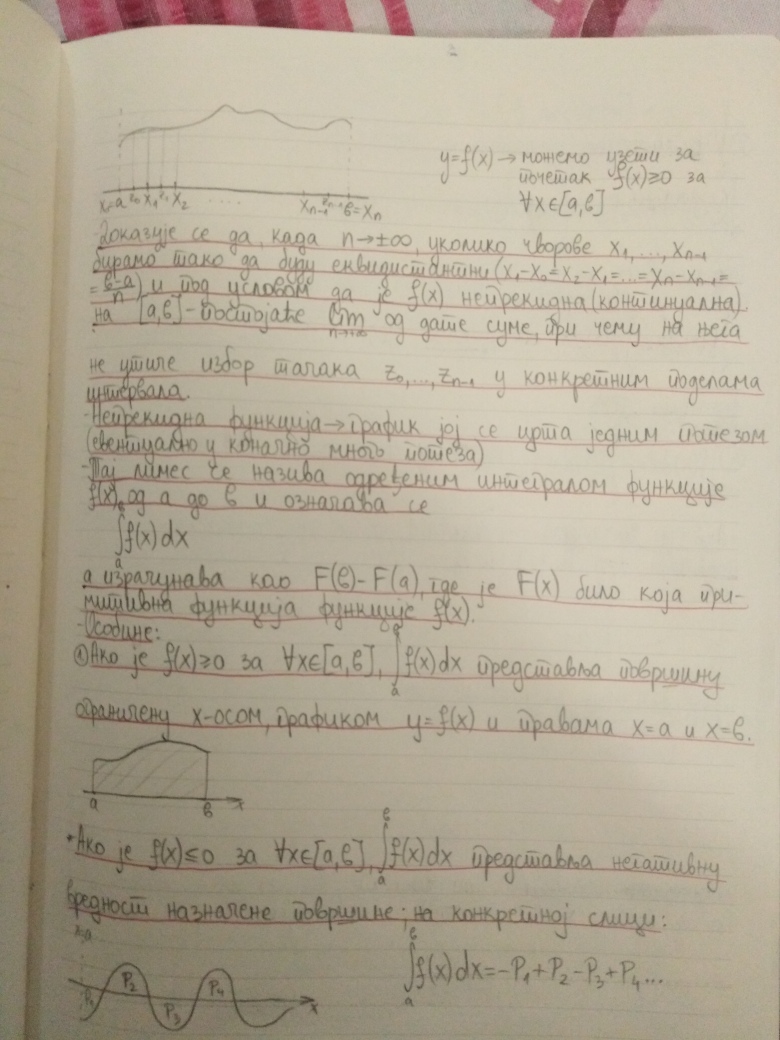 y=f(x) → можемо узети за
почетак f(x)≥0 за
∀x∈[a,b]
x₀=a z₀ x₁ z₁ x₂ .... xₙ₋₁ zₙ₋₁ b=xₙ
-Доказује се да, када n→±∞, уколико чворове x₁,...,xₙ₋₁
бирамо тако да буду еквидистантни (x₁-x₀=x₂-x₁=...=xₙ-xₙ₋₁=
=(b-a)/n) и под условом да је f(x) непрекидна (континуална)
на [a,b]-постојаће lim n→±∞ од дате суме, при чему на њега
не утиче избор тачака z₀,...,zₙ₋₁ у конкретним поделама
интервала.
-Непрекидна функција→график јој се црта једним потезом
(евентуално у коначно много потеза)
-Тај лимес се назива одређеним интегралом функције
f(x) од a до b и означава се
∫ₐᵇ f(x)dx
а израчунава као F(b)-F(a), где је F(x) било која при-
митивна функција функције f(x).
-Особине:
① Ако је f(x)≥0 за ∀x∈[a,b], ∫ₐᵇ f(x)dx представља површину
ограничену x-осом, графиком y=f(x) и правама x=a и x=b.
a b x
*Ако је f(x)≤0 за ∀x∈[a,b], ∫ₐᵇ f(x)dx представља негативну
вредност назначене површине; на конкретној слици:
x=a
P₁ P₂ P₃ P₄ x
∫ₐᵇ f(x)dx=-P₁+P₂-P₃+P₄...